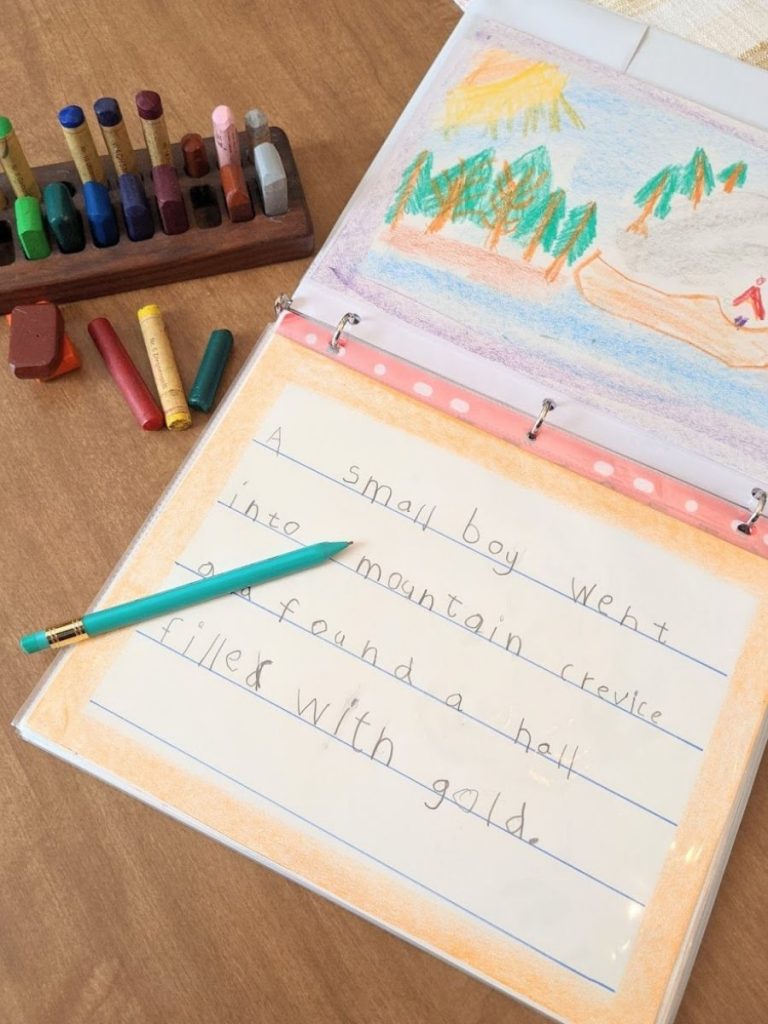 A small boy went
into mountain crevice
and found a hall
filled with gold.